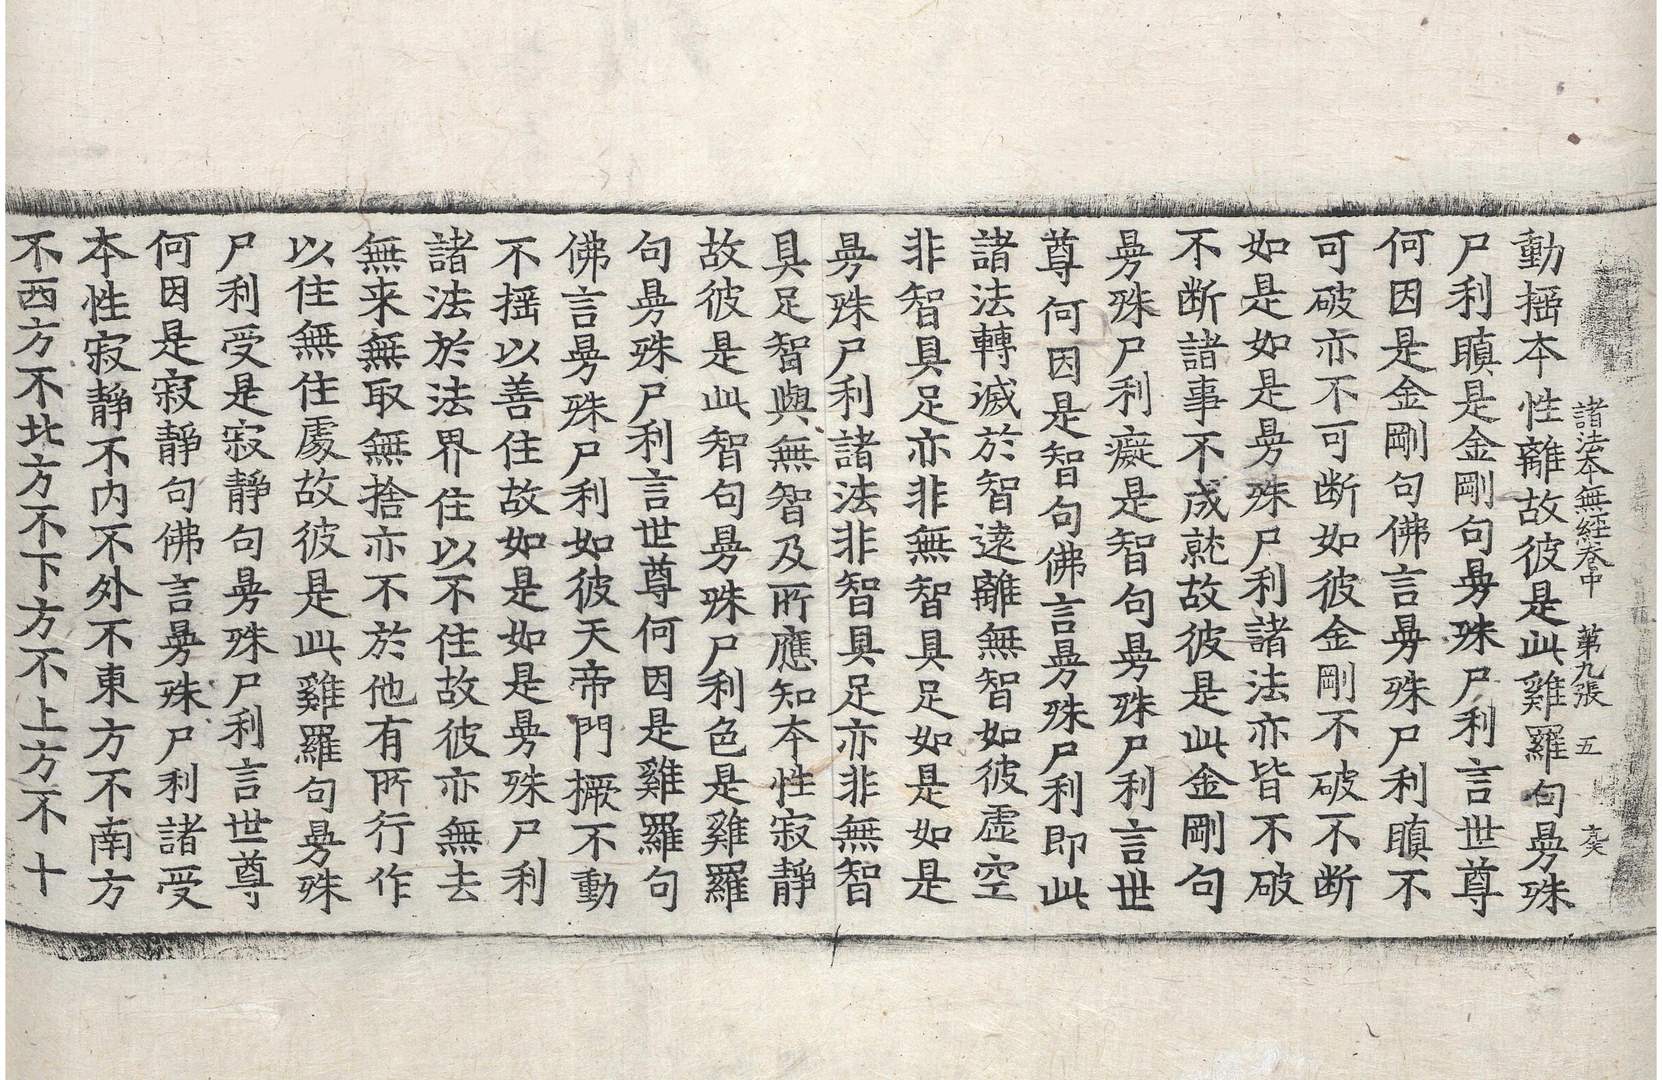 諸法本無經卷中　第九張　五
動揺本性離故彼是此雞羅句㬅殊
尸利瞋是金剛句㬅殊尸利言世尊
何因是金剛句佛言㬅殊尸利瞋不
可破亦不可断如彼金剛不破不断
如是如是㬅殊尸利諸法亦皆不破
不断諸事不成就故彼是此金剛句
㬅殊尸利癡是智句㬅殊尸利言世
尊何因是智句佛言㬅殊尸利即此
諸法轉滅於智遠離無智如彼虛空
非智具足亦非無智具足如是如是
㬅殊尸利諸法非智具足亦非無智
具足智與無智及所應知本性寂靜
故彼是此智句㬅殊尸利色是雞羅
句㬅殊尸利言世尊何因是雞羅句
佛言㬅殊尸利如彼天帝門橛不動
不揺以善住故如是如是㬅殊尸利
諸法於法界住以不住故彼亦無去
無来無取無捨亦不於他有所行作
以住無住處故彼是此雞羅句㬅殊
尸利受是寂靜句㬅殊尸利言世尊
何因是寂靜句佛言㬅殊尸利諸受
本性寂靜不内不外不東方不南方
不西方不北方不下方不上方不十